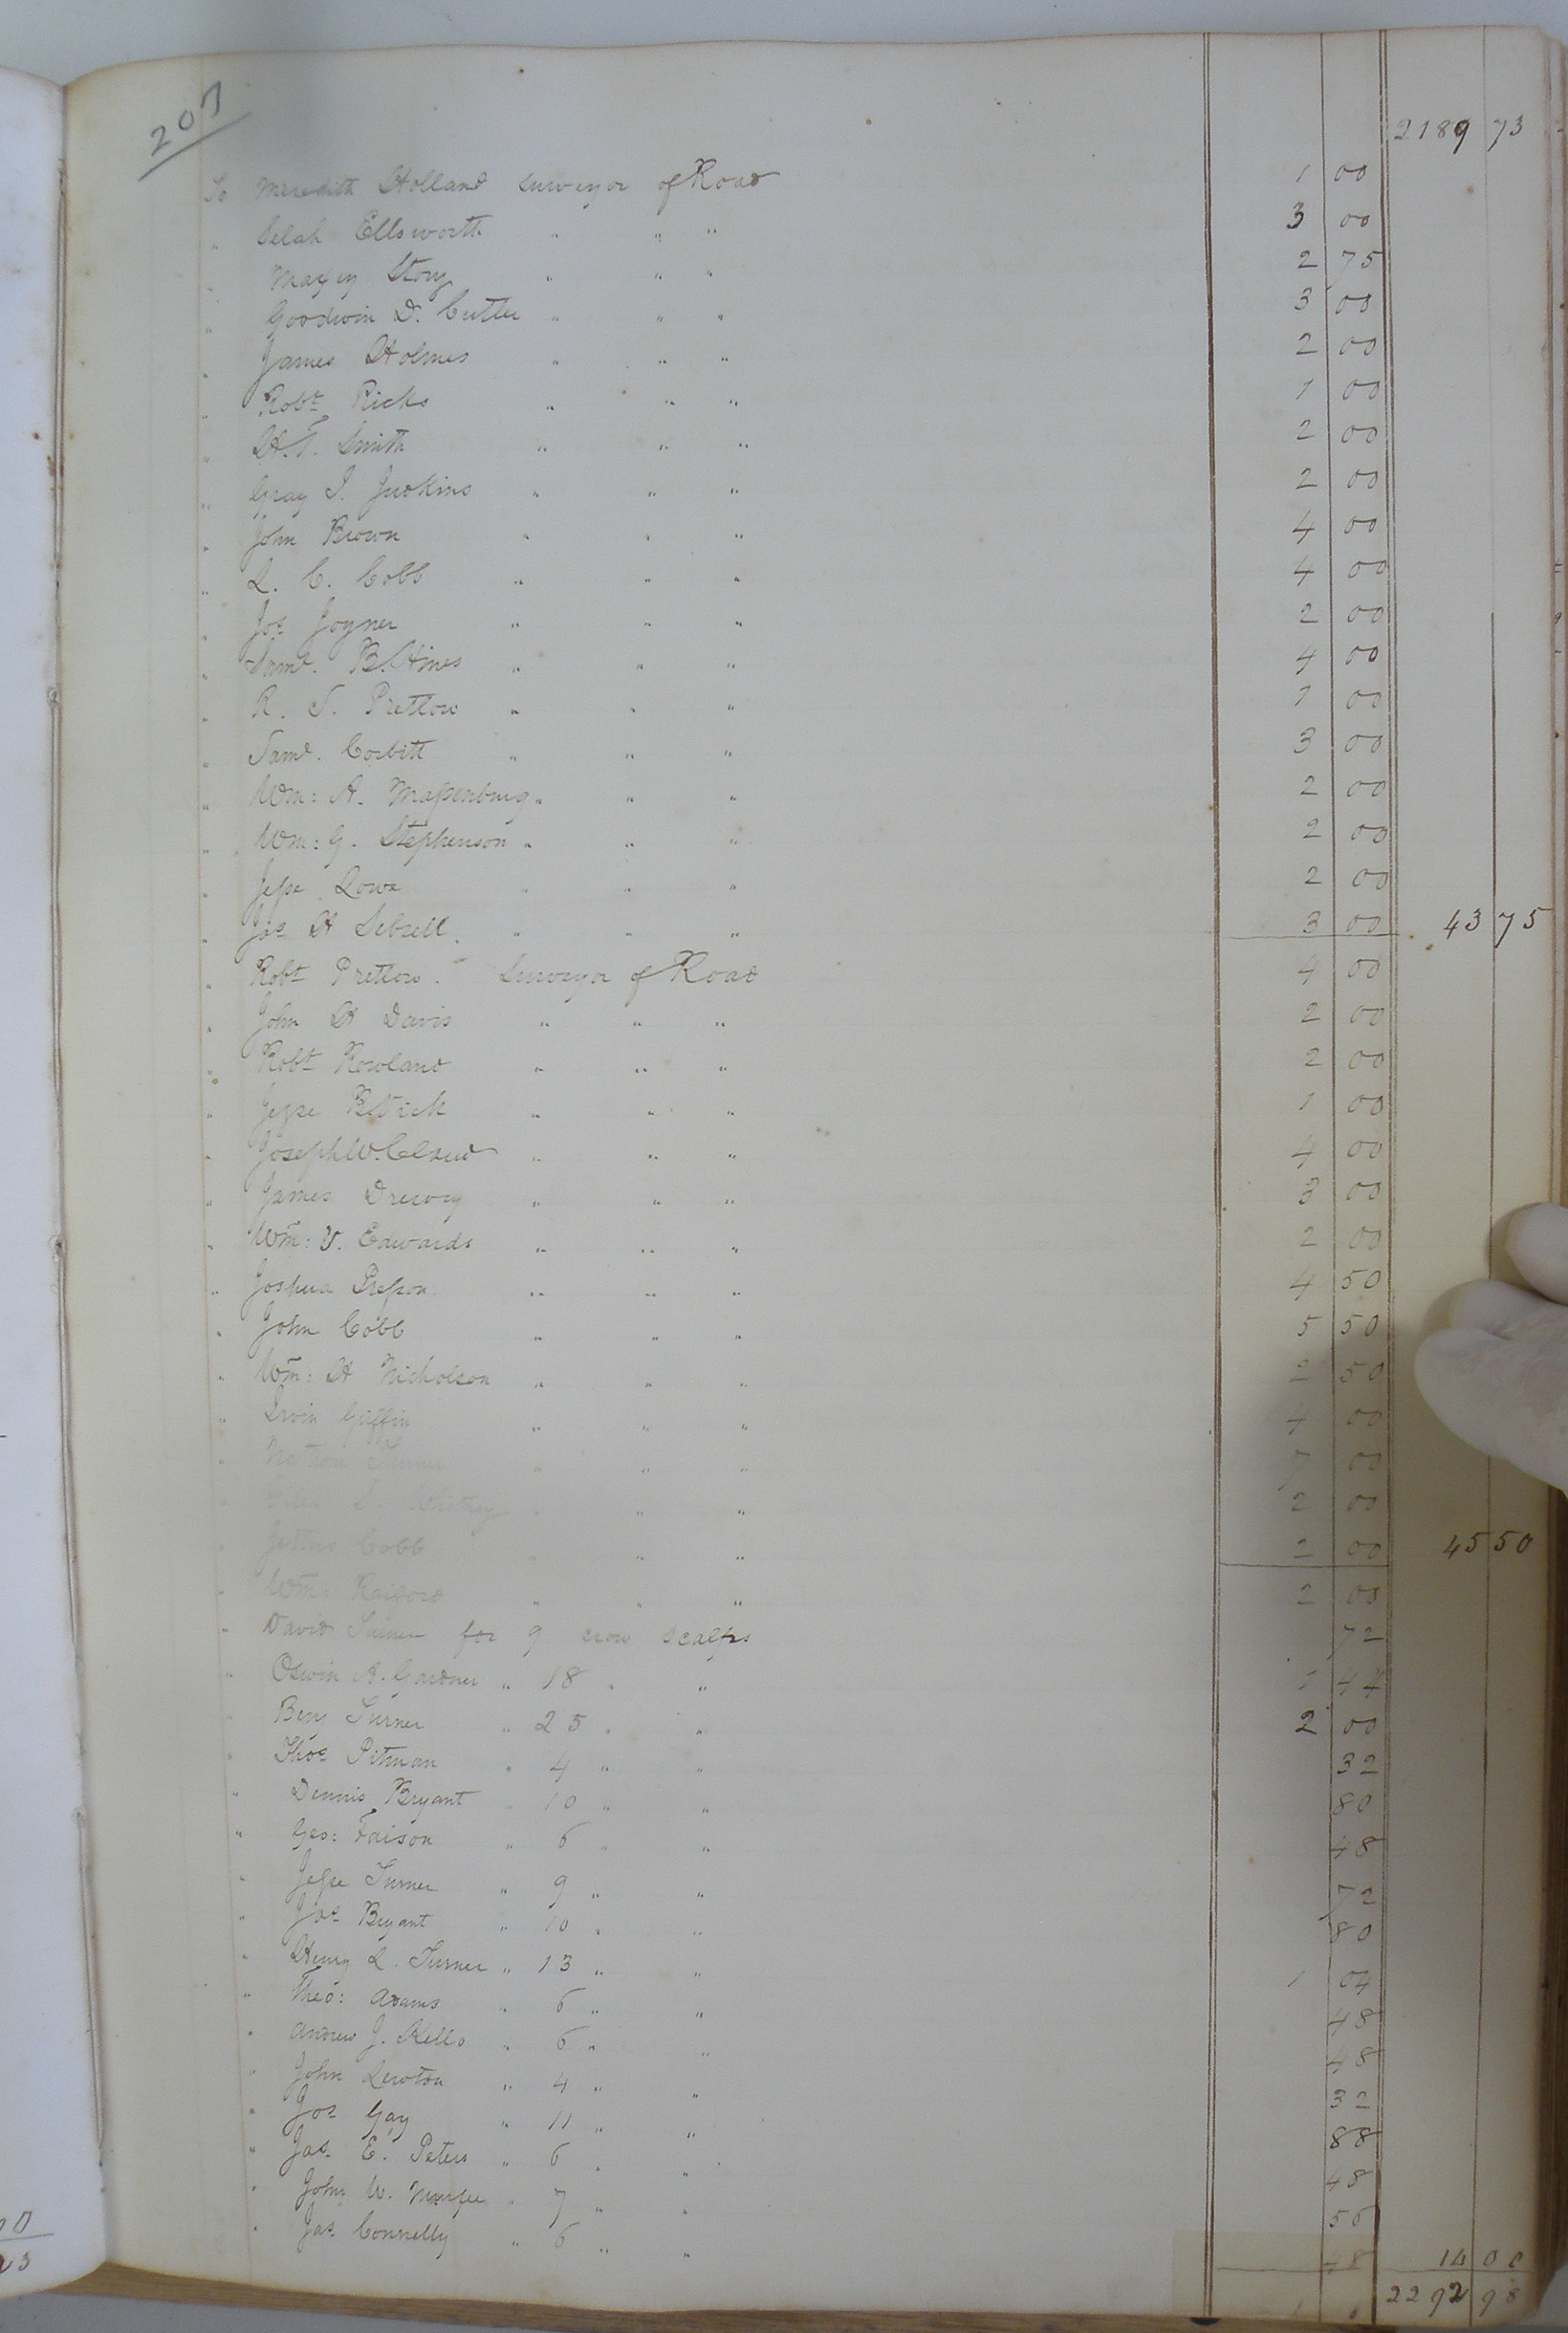 207
2189 73
To Meredith Holland surveyor of Road 1 00
" Selah Ellsworth " " " 3 00
" Maxey Story " " " 2 75
" Goodwin D. Cutler " " " 3 00
" James Holmes " " " 2 00
" Robt Ricks " " " 1 00
" H. T. Smith " " " 2 00
" Gray J. Judkins " " " 2 00
" John Brown " " " 4 00
" L. C. Cobb " " " 4 00
" Jos Joyner " " " 2 00
" Saml. B. Hines " " " 4 00
" R. S. Pretlow " " " 1 00
" Saml. Corbitt " " " 3 00
" Wm: A. Massenburg " " " 2 00
" Wm: G. Stephenson " " " 2 00
" Jesse Lowe " " " 2 00
" Jas H Sebrell " " " 3 00 43 75
" Robt Pretlow. Surveyor of Road 4 00
" John H Davis " " " 2 00
" Robt Rowland " " " 2 00
" Jesse " " " 1 00
" Joseph W. Claud " " " 4 00
" James Drewry " " " 3 00
" Wm: V. Edwards " " " 2 00
" Joshua Presson " " " 4 50
" John Cobb " " " 5 50
" Wm: H Nicholson " " " 2 50
" Irvin Griffin " " " 4 00
" Nathan Turner " " " 7 00
" " " " 2 00
" Cobb " " " 2 00 45 50
" Wm: Raiford " " " 2 00
" David Turner for 9 crow scalps 72
" Oswin A. Gardner " 18 " " 1 44
" Benj Turner " 25 " " 2 00
" Thos Pitman " 4 " " 32
" Dennis Bryant " 10 " " 80
" Geo: Faison " 6 " " 48
" Jesse Turner " 9 " " 72
" Jas Bryant " 10 " " 80
" Henry L. Turner " 13 " " 1 04
" Theo: Adams " 6 " " 48
" Andrew J. Kello " 6 " " 48
" John Lewton " 4 " " 32
" Jos Gay " 11 " " 88
" Jas. E. Peters " 6 " " 48
" John W. " 7 " " 56
" Jas Connelly " 6 " " 48 14 00
2292 98